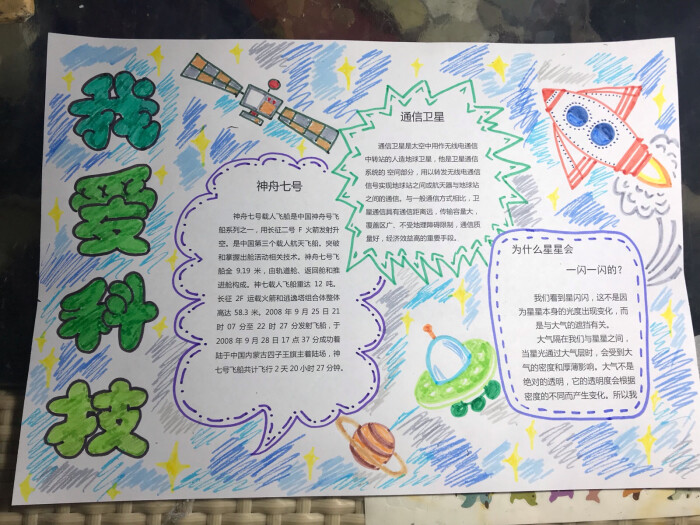 我爱科技
神舟七号
神舟七号载人飞船是中国神舟号飞
船系列之一，用长征二号 F 火箭发射升
空。是中国第三个载人航天飞船。突破
和掌握出舱活动相关技术。神舟七号飞
船全 9.19 米，由轨道舱、返回舱和推
进舱构成。神七载人飞船重达 12 吨。
长征 2F 运载火箭和逃逸塔组合体整体
高达 58.3 米。2008 年 9 月 25 日 21
时 07 分至 22 时 27 分发射飞船，于
2008 年 9 月 28 日 17 点 37 分成功着
陆于中国内蒙古四子王旗主着陆场，神
七号飞船共计飞行 2 天 20 小时 27 分钟。
通信卫星
通信卫星是太空中用作无线电通信
中转站的人造地球卫星，他是卫星通信
系统的 空间部分，用以转发无线电通信
信号实现地球站之间或航天器与地球站
之间的通信。与一般通信方式相比，卫
星通信具有通信距离远，传输容量大，
覆盖区广，不受地理障碍限制，通信质
量好，经济效益高的重要手段。
为什么星星会
一闪一闪的？
我们看到星闪闪，这不是因
为星星本身的光度出现变化，而
是与大气的遮挡有关。
大气隔在我们与星星之间，
当星光通过大气层时，会受到大
气的密度和厚薄影响。大气不是
绝对的透明，它的透明度会根据
密度的不同而产生变化。所以我